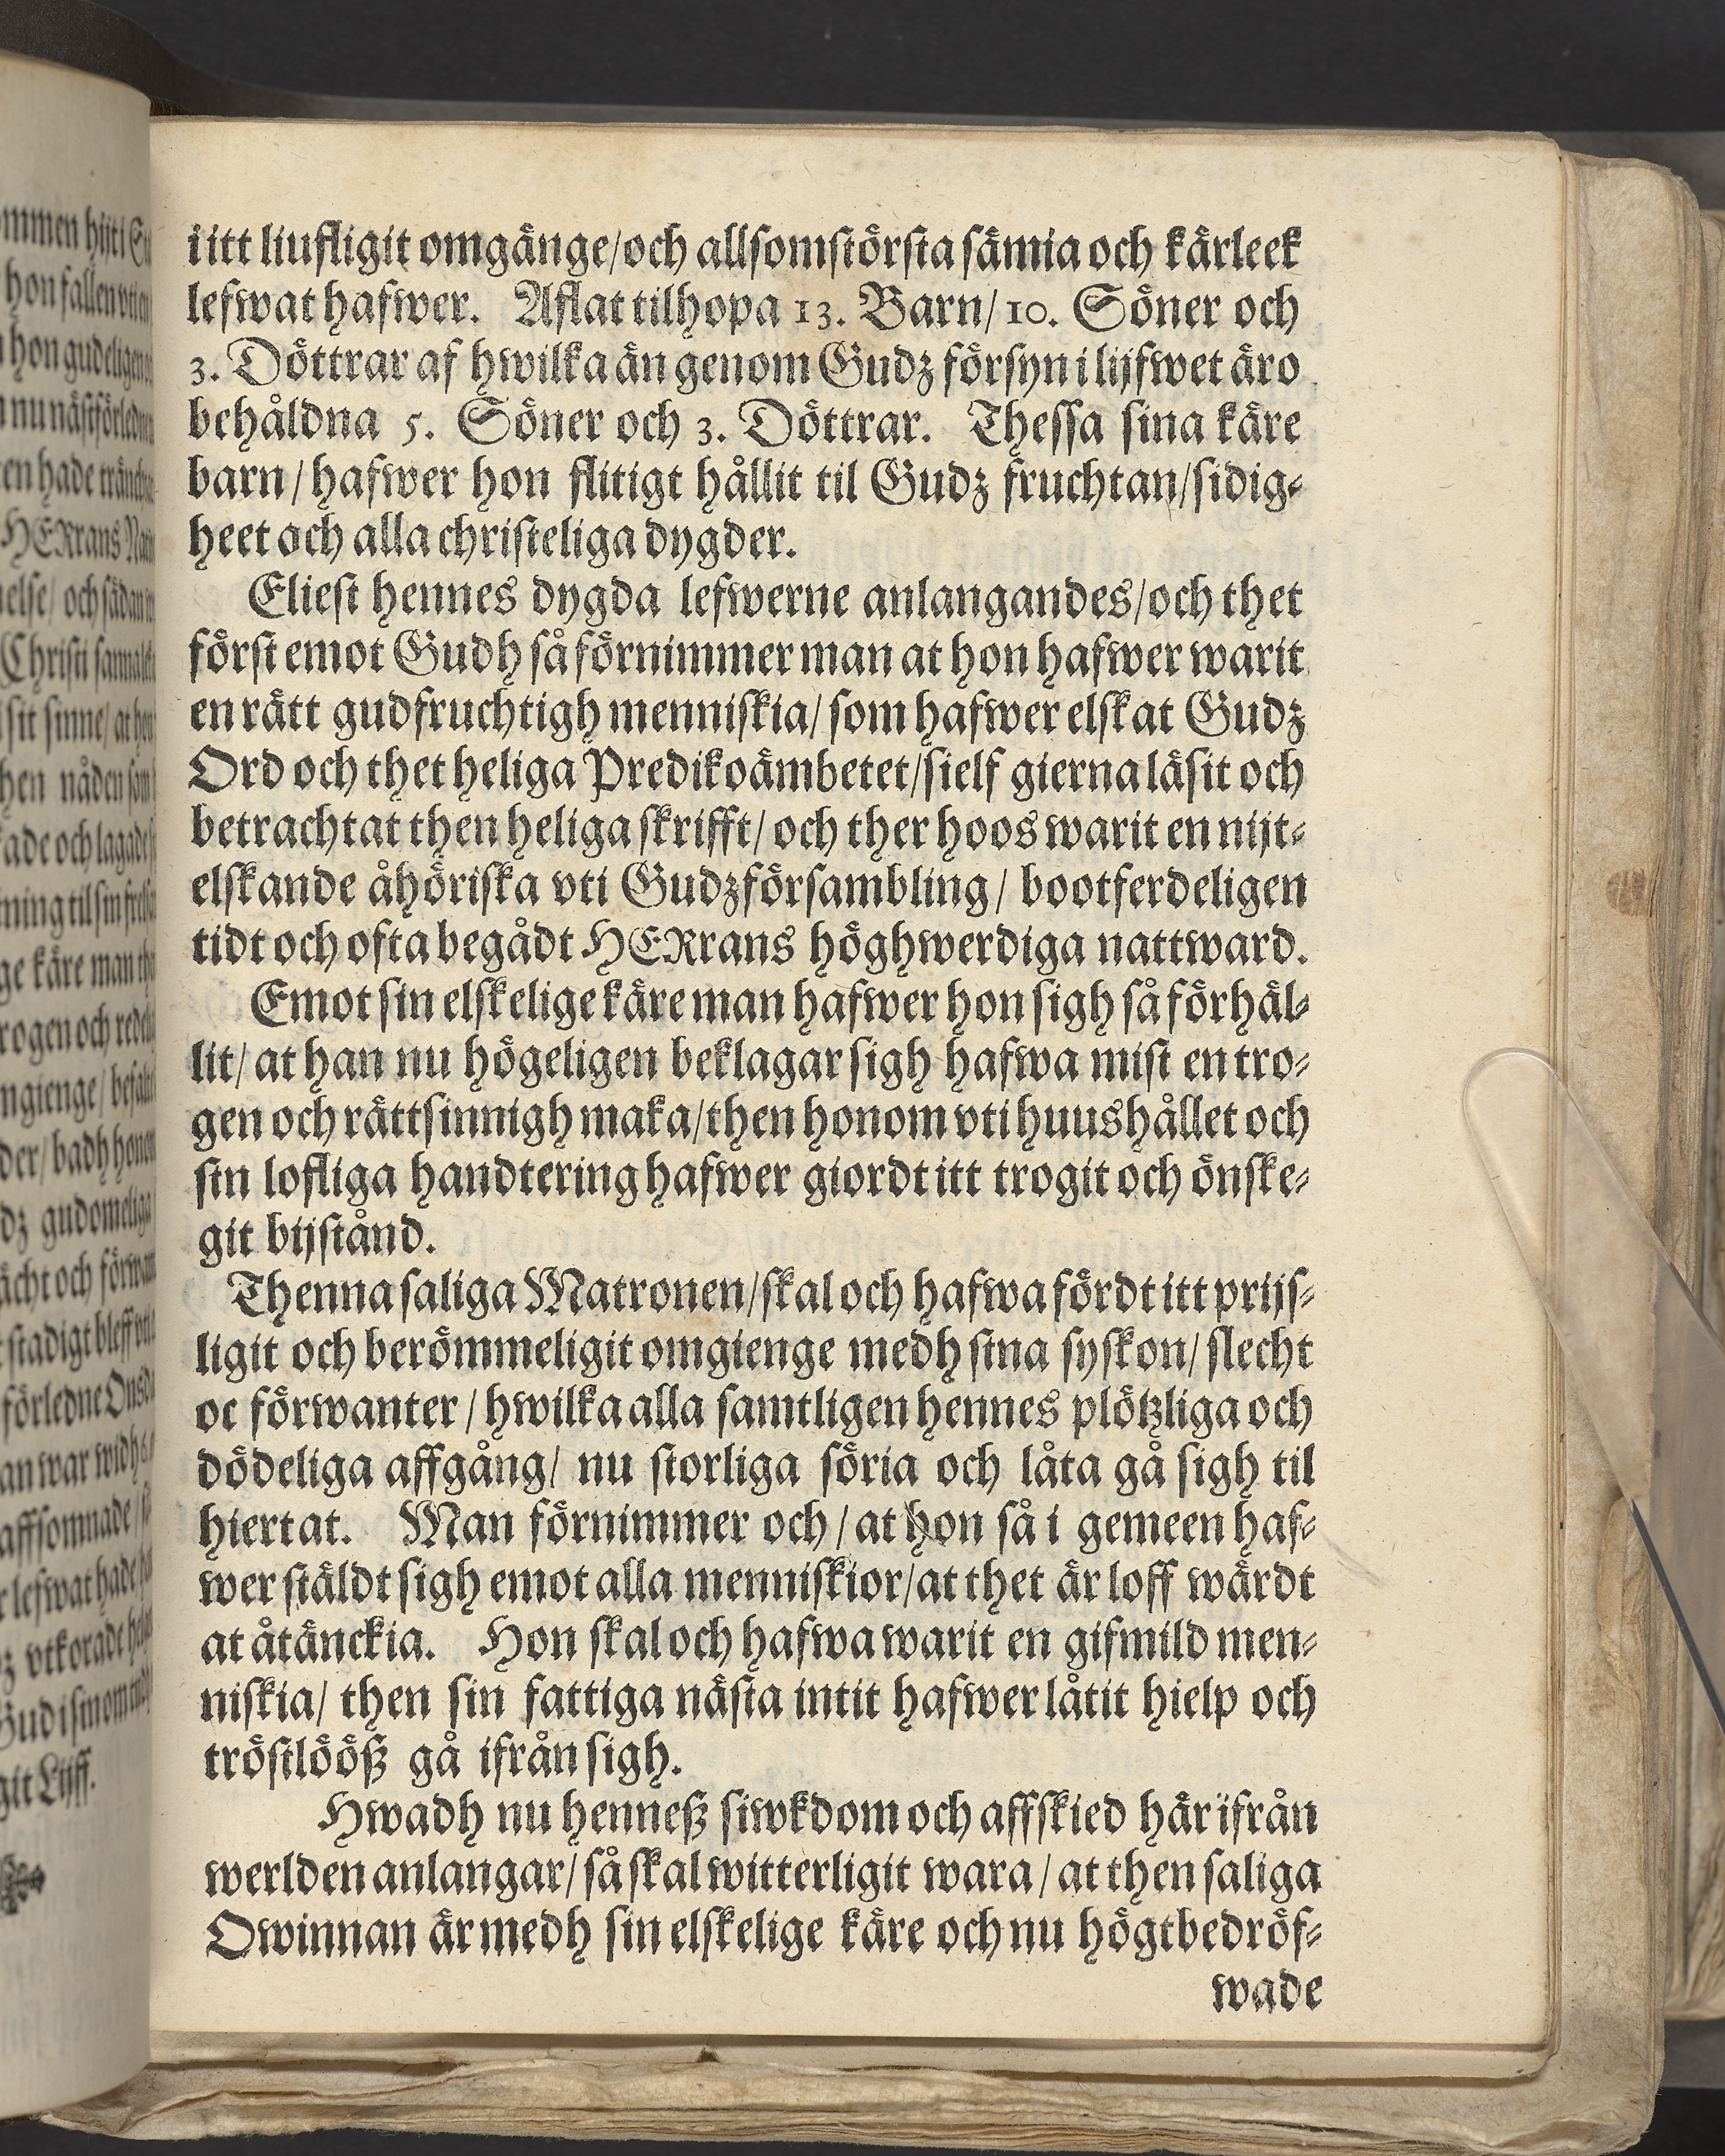 i itt liufligit omgänge/och allsomstörsta sämia och kärleek
lefwat hafwer. Aflat tilhopa 13. Barn/ 10. Söner och
3. Döttrar af hwilka än genom Gudz försyn i lijfwet äro
behåldna 5. Söner och 3. Döttrar. Thessa sina käre
barn/ hafwer hon flitigt hållit til Gudz fruchtan/sidig-
heet och alla christeliga dygder.
Eliest hennes dygda lefwerne anlangandes/och thet
först emot Gudh så förnimmer man at hon hafwer warit
en rätt gudfruchtigh menniskia/ som hafwer elskat Gudz
Ord och thet heliga Predikoämbetet/sielf gierna läsit och
betrachtat then heliga skrifft/ och ther hoos warit en nijt-
elskande åhöriska vti Gudzförsambling/ bootferdeligen
tidt och ofta begådt HERrans höghwerdiga nattward.
Emot sin elskelige käre man hafwer hon sigh så förhäl-
lit/ at han nu högeligen beklagar sigh hafwa mist en tro-
gen och rättsinnigh maka/then honom vti huushållet och
sin lofliga handtering hafwer giordt itt trogit och önske-
git bijstånd.
Thenna saliga Matronen/skal och hafwa fördt itt prijs-
ligit och berömmeligit omgienge medh sina syskon/ slecht
oc förwanter / hwilka alla samtligen hennes plötzliga och
dödeliga affgång/ nu storliga söria och låta gå sigh til
hiertat. Man förnimmer och / at hon så i gemeen haf-
wer stäldt sigh emot alla menniskior/at thet är loff wärdt
at åtänckia. Hon skal och hafwa warit en gifmild men-
niskia/ then sin fattiga nästa intit hafwer låtit hielp och
tröstlööß gå ifrån sigh.
Hwadh nu henneß siwkdom och affskied här ifrån
werlden anlangar/ så skal witterligit wara / at then saliga
Qwinnan är medh sin elskelige käre och nu högtbedröf-
wade